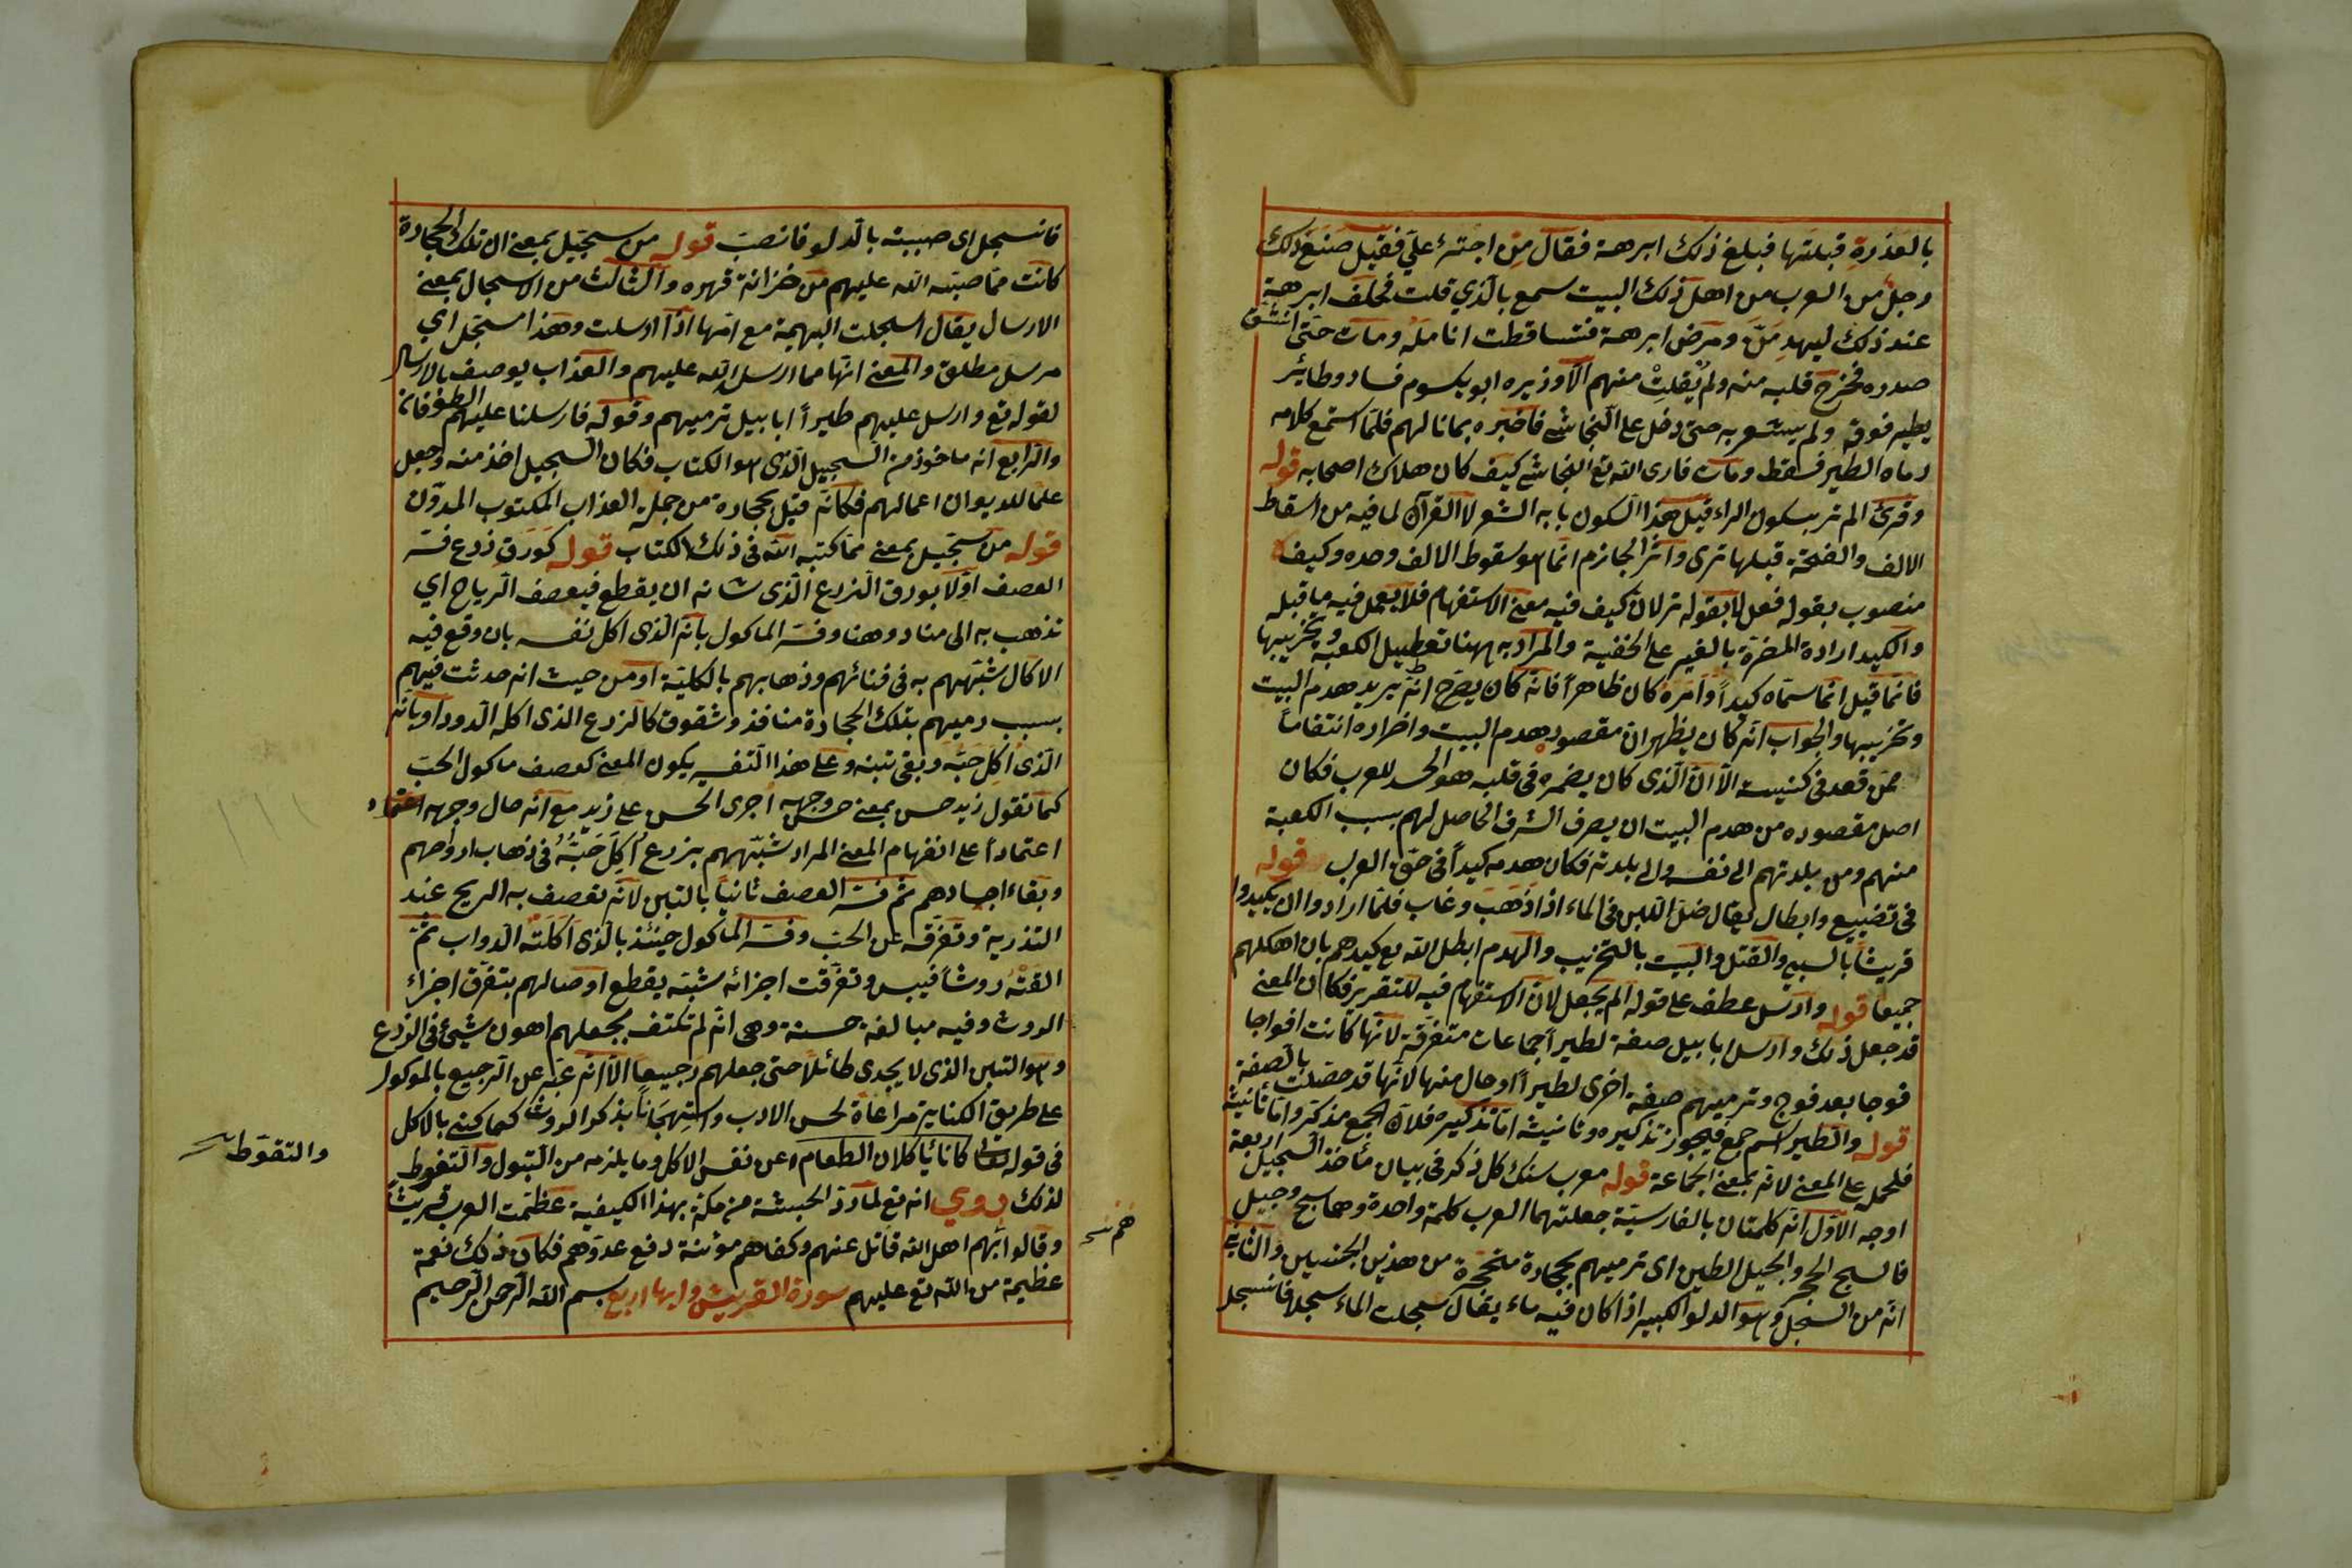 بالعذرة قبلتها فبلغ ذلك ابرهة فقال من اجترئ علي فقيل صنع ذلك
رجل من العرب من اهل ذلك البيت سمع بالذي قلت فحلف ابرهة
عند ذلك ليهدمنّ ومرض ابرهة فتساقطت انامله ومات حتى انشق
صدره فخرج قلبه منه ولم يفلت منهم الا وزيره ابو يكسوم فسار وطائر
يطير فوقه ولم يشعر به حتى دخل على النجاشي فاخبره بما نالهم فلما استتمع كلامه
رماه الطير فسقط ومات فارى الله تع النجاشي كيف كان هلاك اصحابه قوله
وقرئ الم تر بسكون الراء قيل هذا السكون بابه الشعر لا القرآن لما فيه من اسقاط
الالف والفتحة قبلها ترى واثر الجازم انما هو سقوط الالف وحده وكيف
منصوب بقوله فعل لا بقوله تر لان كيف فيه معنى الاستفهام فلا يعمل فيه ما قبله
والكيد ارادة المضرة بالغير على الخفية والمراد به ههنا تعطيل الكعبة وتخريبها
فانما قيل انما سماه كيدا وامره كان ظاهرا فانه كان يصرح انه يريد هدم البيت
وتخريبها والجواب انه كان يظهر ان مقصوده هدم البيت واضراره انتقاما
ممن قعد في كنيسته الا ان الذي كان يضمره في قلبه هو الحسد للعرب فكان
اصل مقصوده من هدم البيت ان يصرف الشرف الحاصل لهم بسبب الكعبة
منهم ومن بلدتهم الى نفسه والى بلدته فكان هدمه كيدا في حق العرب قوله
في تضييع وابطال يقال ضل اللبن في الماء اذا ذهب وغاب فلما ارادوا ان يكيدوا
قريشا بالسبي والقتل والبيت بالتخريب والهدم ابطل الله تع كيدهم بان اهلكهم
جميعا قوله وارسل عطف على قوله الم يجعل لان الاستفهام فيه للتقرير فكان المعنى
قد جعل ذلك وارسل ابابيل صفة لطيرا جماعات متفرقة لانها كانت افواجا
فوجا بعد فوج وترميهم صفة اخرى لطيرا او حال منها لانها قد خصّصت بالصفة
قوله والطير اسم جمع فيجوز تذكيره وتانيثه اما تذكيره فلان الجمع مذكر واما تانيثه
فلحمل على المعنى لانه بمعنى الجماعة قوله معرب سنك كل ذكر في بيان مأخذ السجيل اربعة
اوجه الاول انه كلمتان بالفارسية جعلتهما العرب كلمة واحدة وهما سج وجيل
فالسج الحجر والجيل الطين اى ترميهم بحجارة متحجرة من هذين الجنسين والثاني
انه من السجل وهو الدلو الكبير اذا كان فيه ماء يقال سجلت الماء سجلا فانسجل
فانسجل اى صببته بالدلو فانصب قوله من سجيل بمعنى ان تلك الحجارة
كانت مما صبه الله عليهم من خزانة قهره والثالث من الاسجال بمعنى
الارسال يقال اسجلت البهيمة مع امها اذا ارسلت وهذا مسجل اي
مرسل مطلق والمعنى انها مما ارسل الله عليهم والعذاب يوصف بالارسال
لقوله تع وارسل عليهم طيرا ابابيل ترميهم وقوله فارسلنا عليهم الطوفان
والرابع انه ماخوذ من السجيل الذى هو الكتاب فكان السجيل اخذ منه وجعل
علما للديوان اعمالهم فكانه قيل بحجارة من جملة العذاب المكتوب المدون
قوله من سجيل بمعنى مما كتبه الله في ذلك الكتاب قوله كورق زرع فسر
العصف اولا بورق الزرع الذى شانه ان يقطع فيعصف الرياح اي
تذهب به الى هنا وهنا وفسر الماكول بانه الذى اكل نفسه بان وقع فيه
الاكال شبههم به في فنائهم وذهابهم بالكلية او من حيث انه حدثت فيهم
بسبب رميهم بتلك الحجارة منافذ وشقوق كالزرع الذى اكله الدود او بانه
الذى اكل حبه وبقي تبنه وعلى هذا التفسير يكون المعنى كعصف ماكول الحب
كما تقول زيد حسن بمعنى حسن وجهه اجرى الحسن على زيد مع انه حال وجهه
اعتمادا على انفهام المعنى المراد شبههم بزرع اكل حبه في ذهاب ارواحهم
وبقاء اجسادهم ثم فسر العصف ثانيا بالتبن لانه تعصف به الريح عند
التذرية وتفرقه عن الحب وفسر الماكول حينئذ بالذى اكلته الدواب ثم
القته روثا فيبس وتفرقت اجزائه شبه يقطع اوصالهم بتفرق اجزاء
الروث وفيه مبالغة حسنة وهى انه لم تكتف بجعلهم اهون شيئ في الزرع
وهو التبن الذى لا يجدى طائلا حتى جعلهم رجيعا الا انه عبر عن الرجيع بالموكول
على طريق الكناية مراعاة لحسن الادب واستهجانا بذكر الروث كما كنى بالاكل
في قوله تعالى كانا يأكلان الطعام عن نفس الاكل وما يلزمه من التبول والتغوط
لذلك روي انه تع لما رد الحبشة من مكة بهذا الكيفية عظمت العرب قريشا
وقالوا انهم اهل الله قاتل عنهم وكفاهم مؤنة دفع عدوهم فكان ذلك نعمة
عظيمة من الله تع عليهم سورة القريش وايها اربع بسم الله الرحمن الرحيم
والتقوط